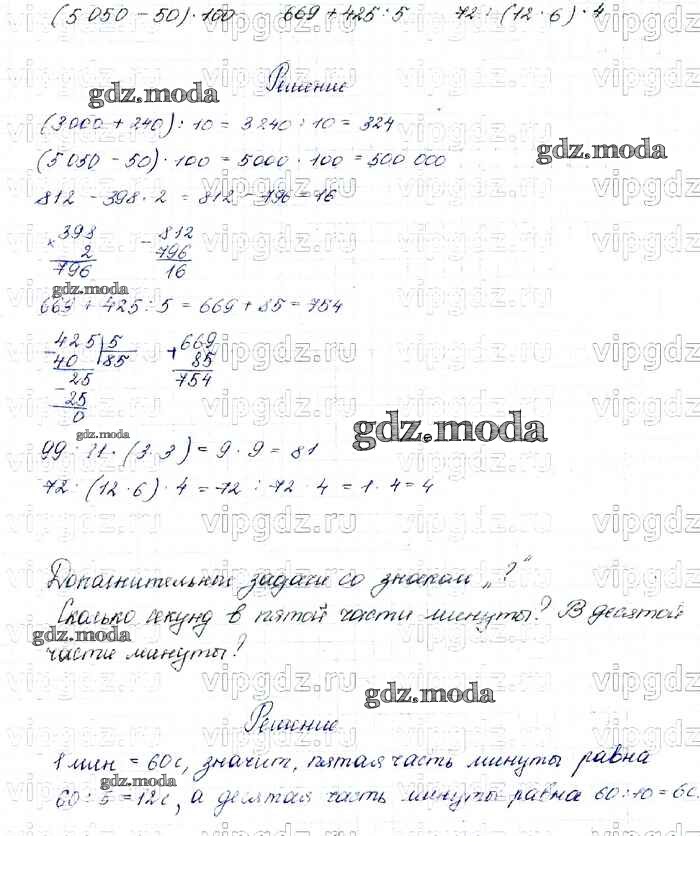 (5 050 - 50) · 100 669 + 425 : 5 72 : (12 · 6) · 4
Решение
(3000 + 240) : 10 = 3240 : 10 = 324
(5 050 - 50) · 100 = 5000 · 100 = 500 000
812 - 398 · 2 = 812 - 796 = 16
× 398 - 812
2 796
796 16
669 + 425 : 5 = 669 + 85 = 754
- 425 | 5 + 669
40 85 85
- 25 754
25
0
99 : 11 · (3 · 3) = 9 · 9 = 81
72 : (12 · 6) · 4 = 72 : 72 · 4 = 1 · 4 = 4
Дополнительной задачи со знаком „?“
Сколько секунд в пятой части минуты? В десятой
части минуты?
Решение
1 мин = 60 с, значит, пятая часть минуты равна
60 : 5 = 12 с, а десятая часть минуты равна 60 : 10 = 6 с.
gdz.moda
vipgdz.ru